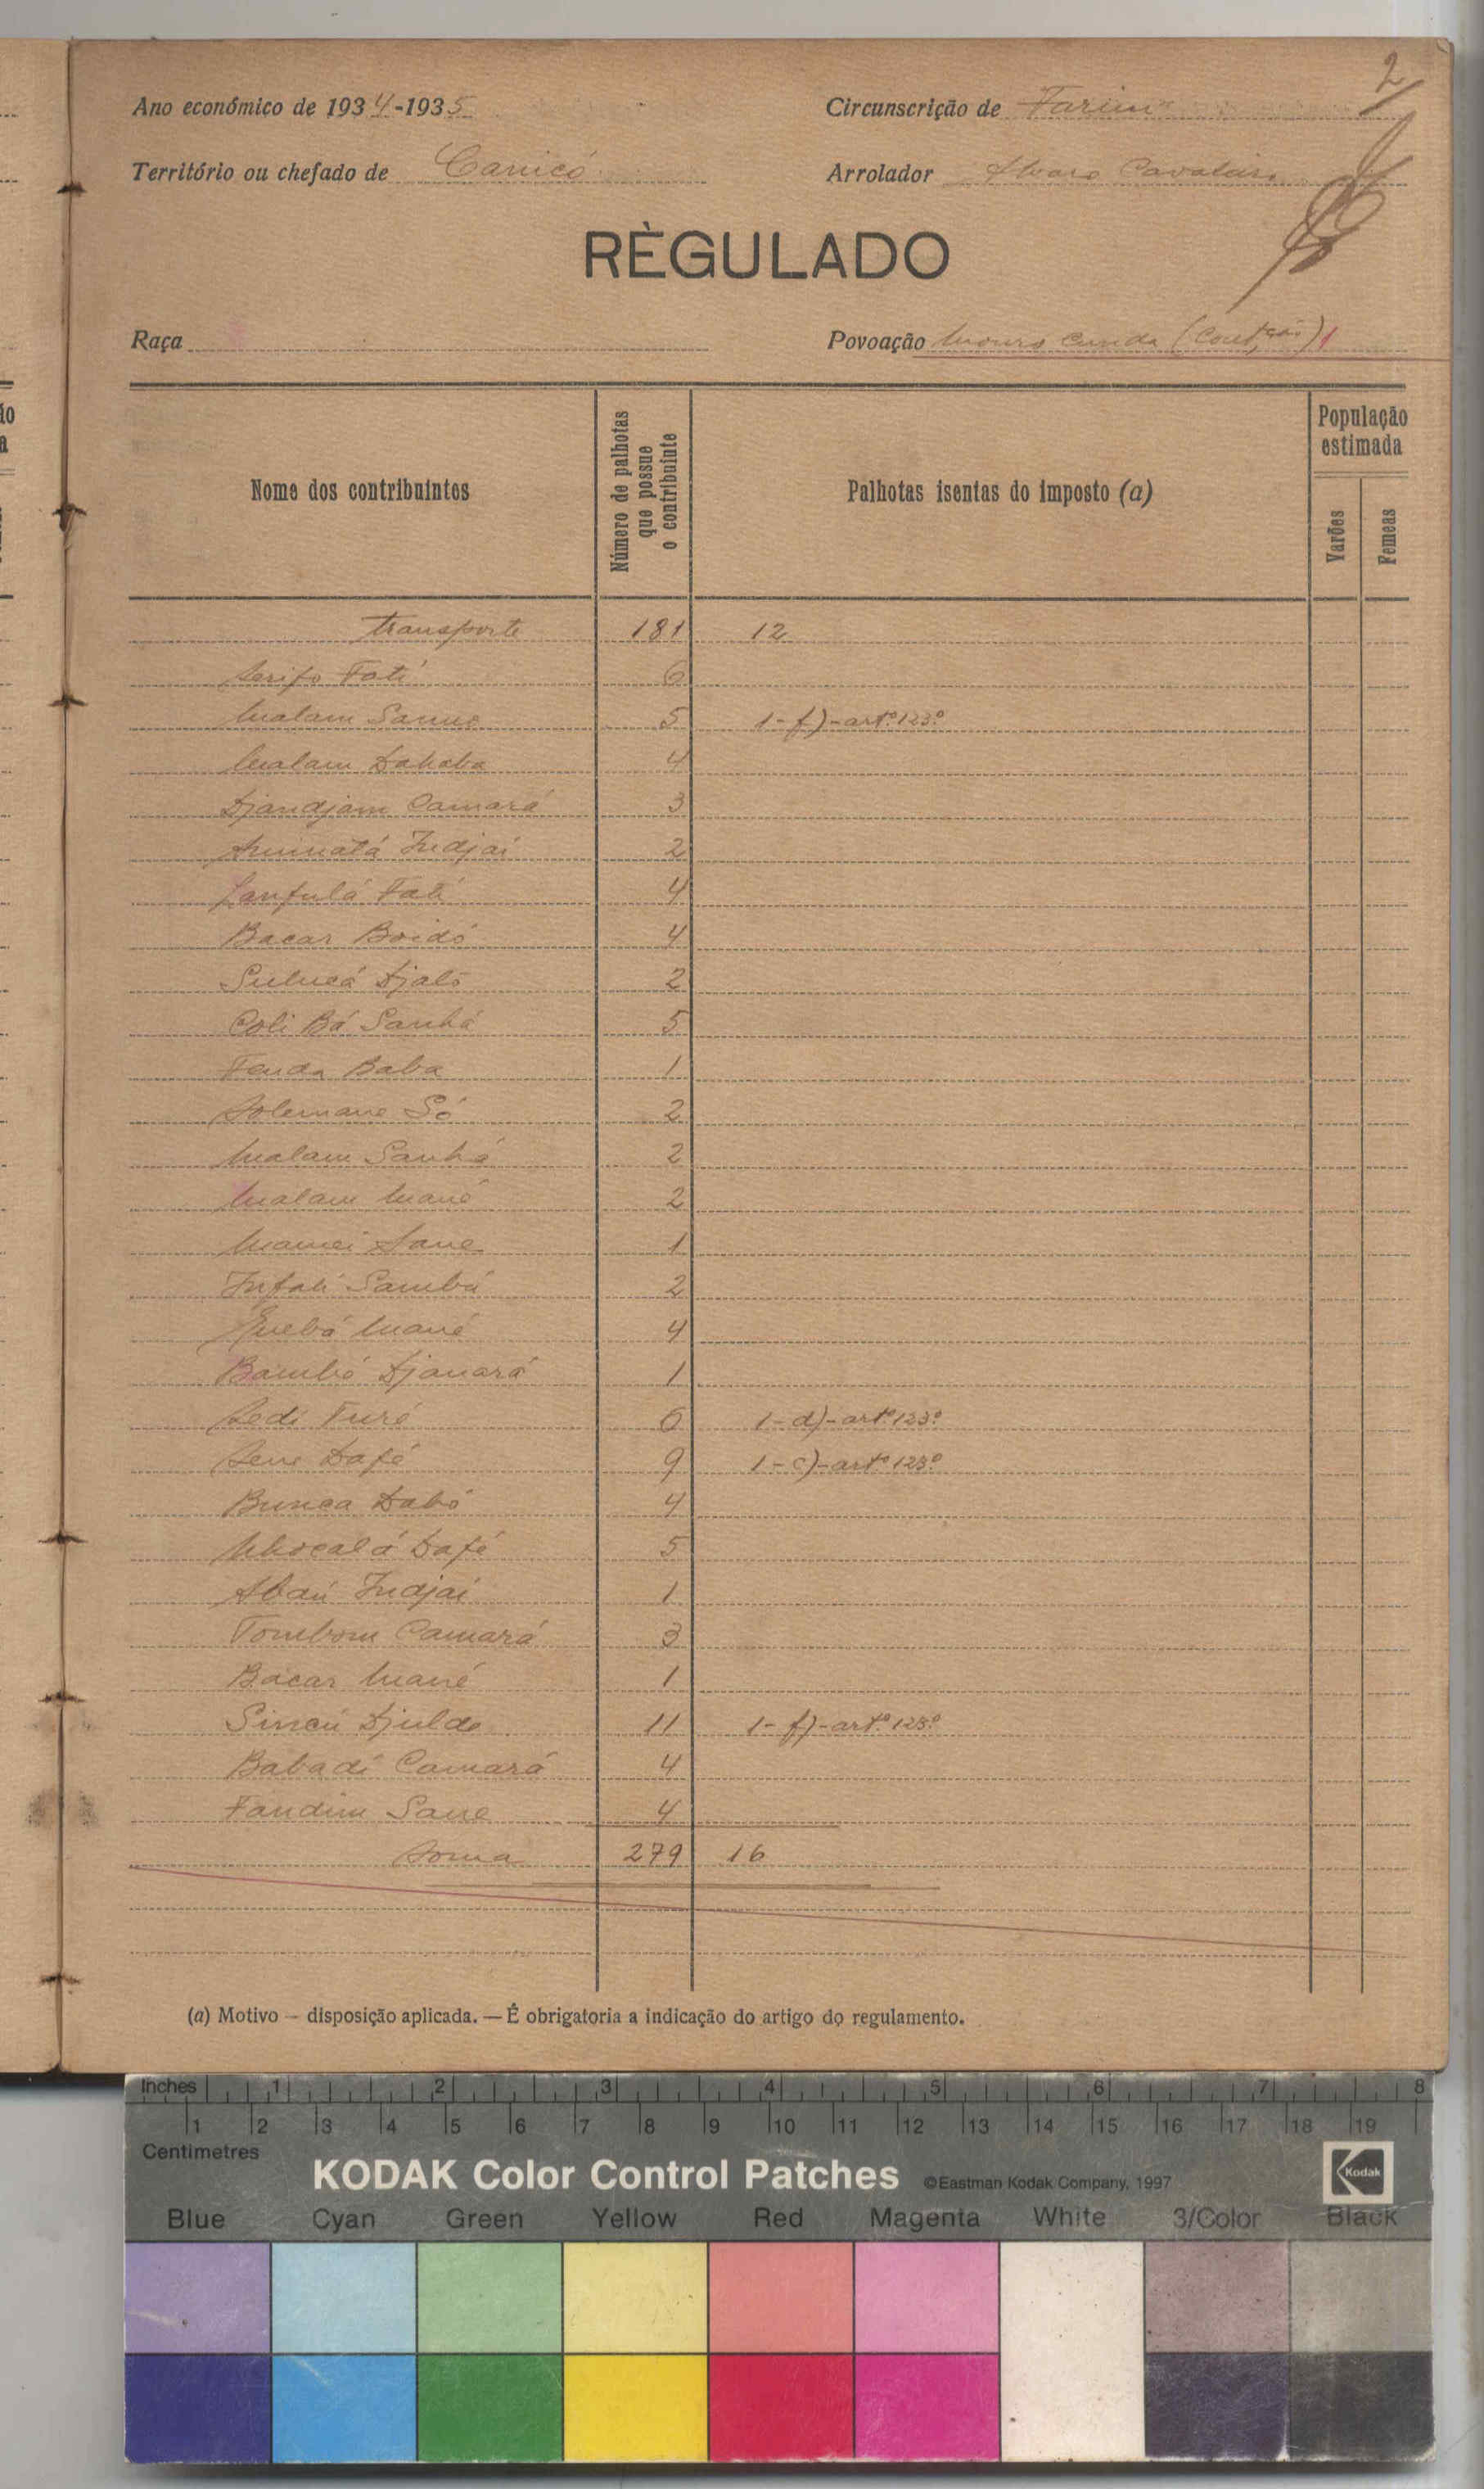 2
Ano económico de 1934-1935
Circunscrição de Farim
Território ou chefado de Canicó
Arrolador Alvaro Cavaleiro
RÈGULADO
Raça
Povoação Mouro Cunda (Cont.ção) 1
Nome dos contribuintes
Número de palhotas que possue o contribuinte
Palhotas isentas do imposto (a)
População estimada
Varões
Femeas
transporte 181 12
Serifo Fati 6
Malam Sanno 5 1-f)-artº.123º
Malam Dahaba 4
Djandjam Camará 3
Aminatá Indjai 2
Lanfulá Fati 4
Bacar Boidó 4
Suncá Djaló 2
Coli Bá Sanhá 5
Fenda Baba 1
Solemane Só 2
Malam Sanhá 2
Malam Mané 2
Mamei Sane 1
Infali Sambú 2
Quebá Mané 4
Bambó Djanará 1
Sedi Turé 6 1-d)-artº.123º
Sene Dafé 9 1-c)-artº.123º
Bunca Dabó 4
Nhocalá Dafé 5
Abdú Indjai 1
Tombom Camará 3
Bacar Mané 1
Sincú Djulde 11 1-f)-artº.123º
Babadi Camará 4
Fandim Sane 4
Soma 279 16
(a) Motivo — disposição aplicada. — É obrigatoria a indicação do artigo do regulamento.
Inches 1 2 3 4 5 6 7 8
1 2 3 4 5 6 7 8 9 10 11 12 13 14 15 16 17 18 19
Centimetres
KODAK Color Control Patches ©Eastman Kodak Company, 1997 Kodak
Blue Cyan Green Yellow Red Magenta White 3/Color Black